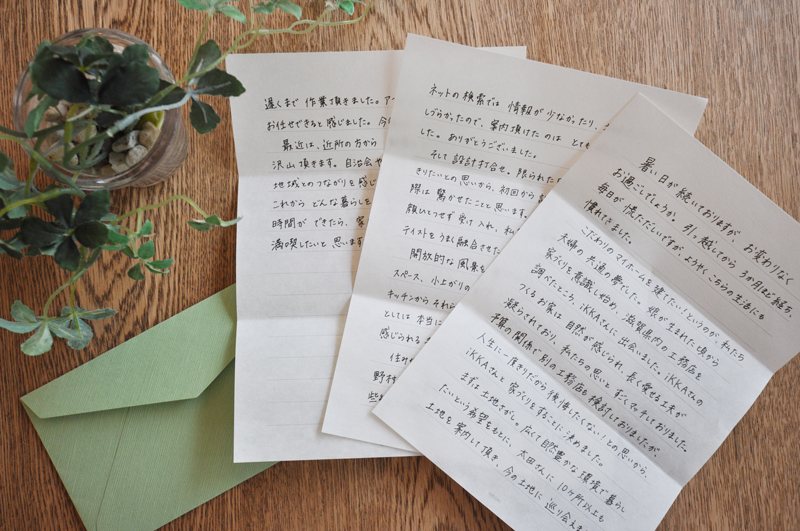 暑い日が続いておりますが、お変わりなく
お過ごしでしょうか。引っ越してから3か月ほど経ち、
毎日が慌ただしいですが、ようやくこちらの生活にも
慣れてきました。
こだわりのマイホームを建てたい!というのが、私たち
夫婦の共通の夢でした。娘が生まれた頃から
家づくりを意識し始め、滋賀県内の工務店を
調べたところ、iKKAさんに出会いました。iKKAさんの
つくるお家は自然が感じられ、長く愛せる工夫が
凝らされており、私たちの思いとすごくマッチしておりました。
予算の関係で別の工務店も検討しておりましたが、
人生に一度きりだから後悔したくない!との思いから、
iKKAさんと家づくりをすることに決めました。
まずは土地さがし。広くて自然豊かな環境で暮らし
たいという希望をもとに、太田さんに10ヶ所以上も
土地を案内して頂き、今の土地に巡り会え
ネットの検索では情報が少なかったり、
しづらかったので、案内頂けたのは とても
した。ありがとうございました。
そして設計打合せ。限られた
きたいとの思いから、初回から
際は驚かせたことと思います。
顔ひとつせず受け入れ、私
テイストをうまく融合させた
開放的な風景を
スペース、小上がりの
キッチンからそれら
としては本当に
感じられる
住み
野村
些
遅くまで作業頂きました。ア
お任せできると感じました。今
最近は、近所の方から
沢山頂きます。自治会や
地域とのつながりを感じ
これからどんな暮らしを
時間ができたら、家
満喫したいと思います